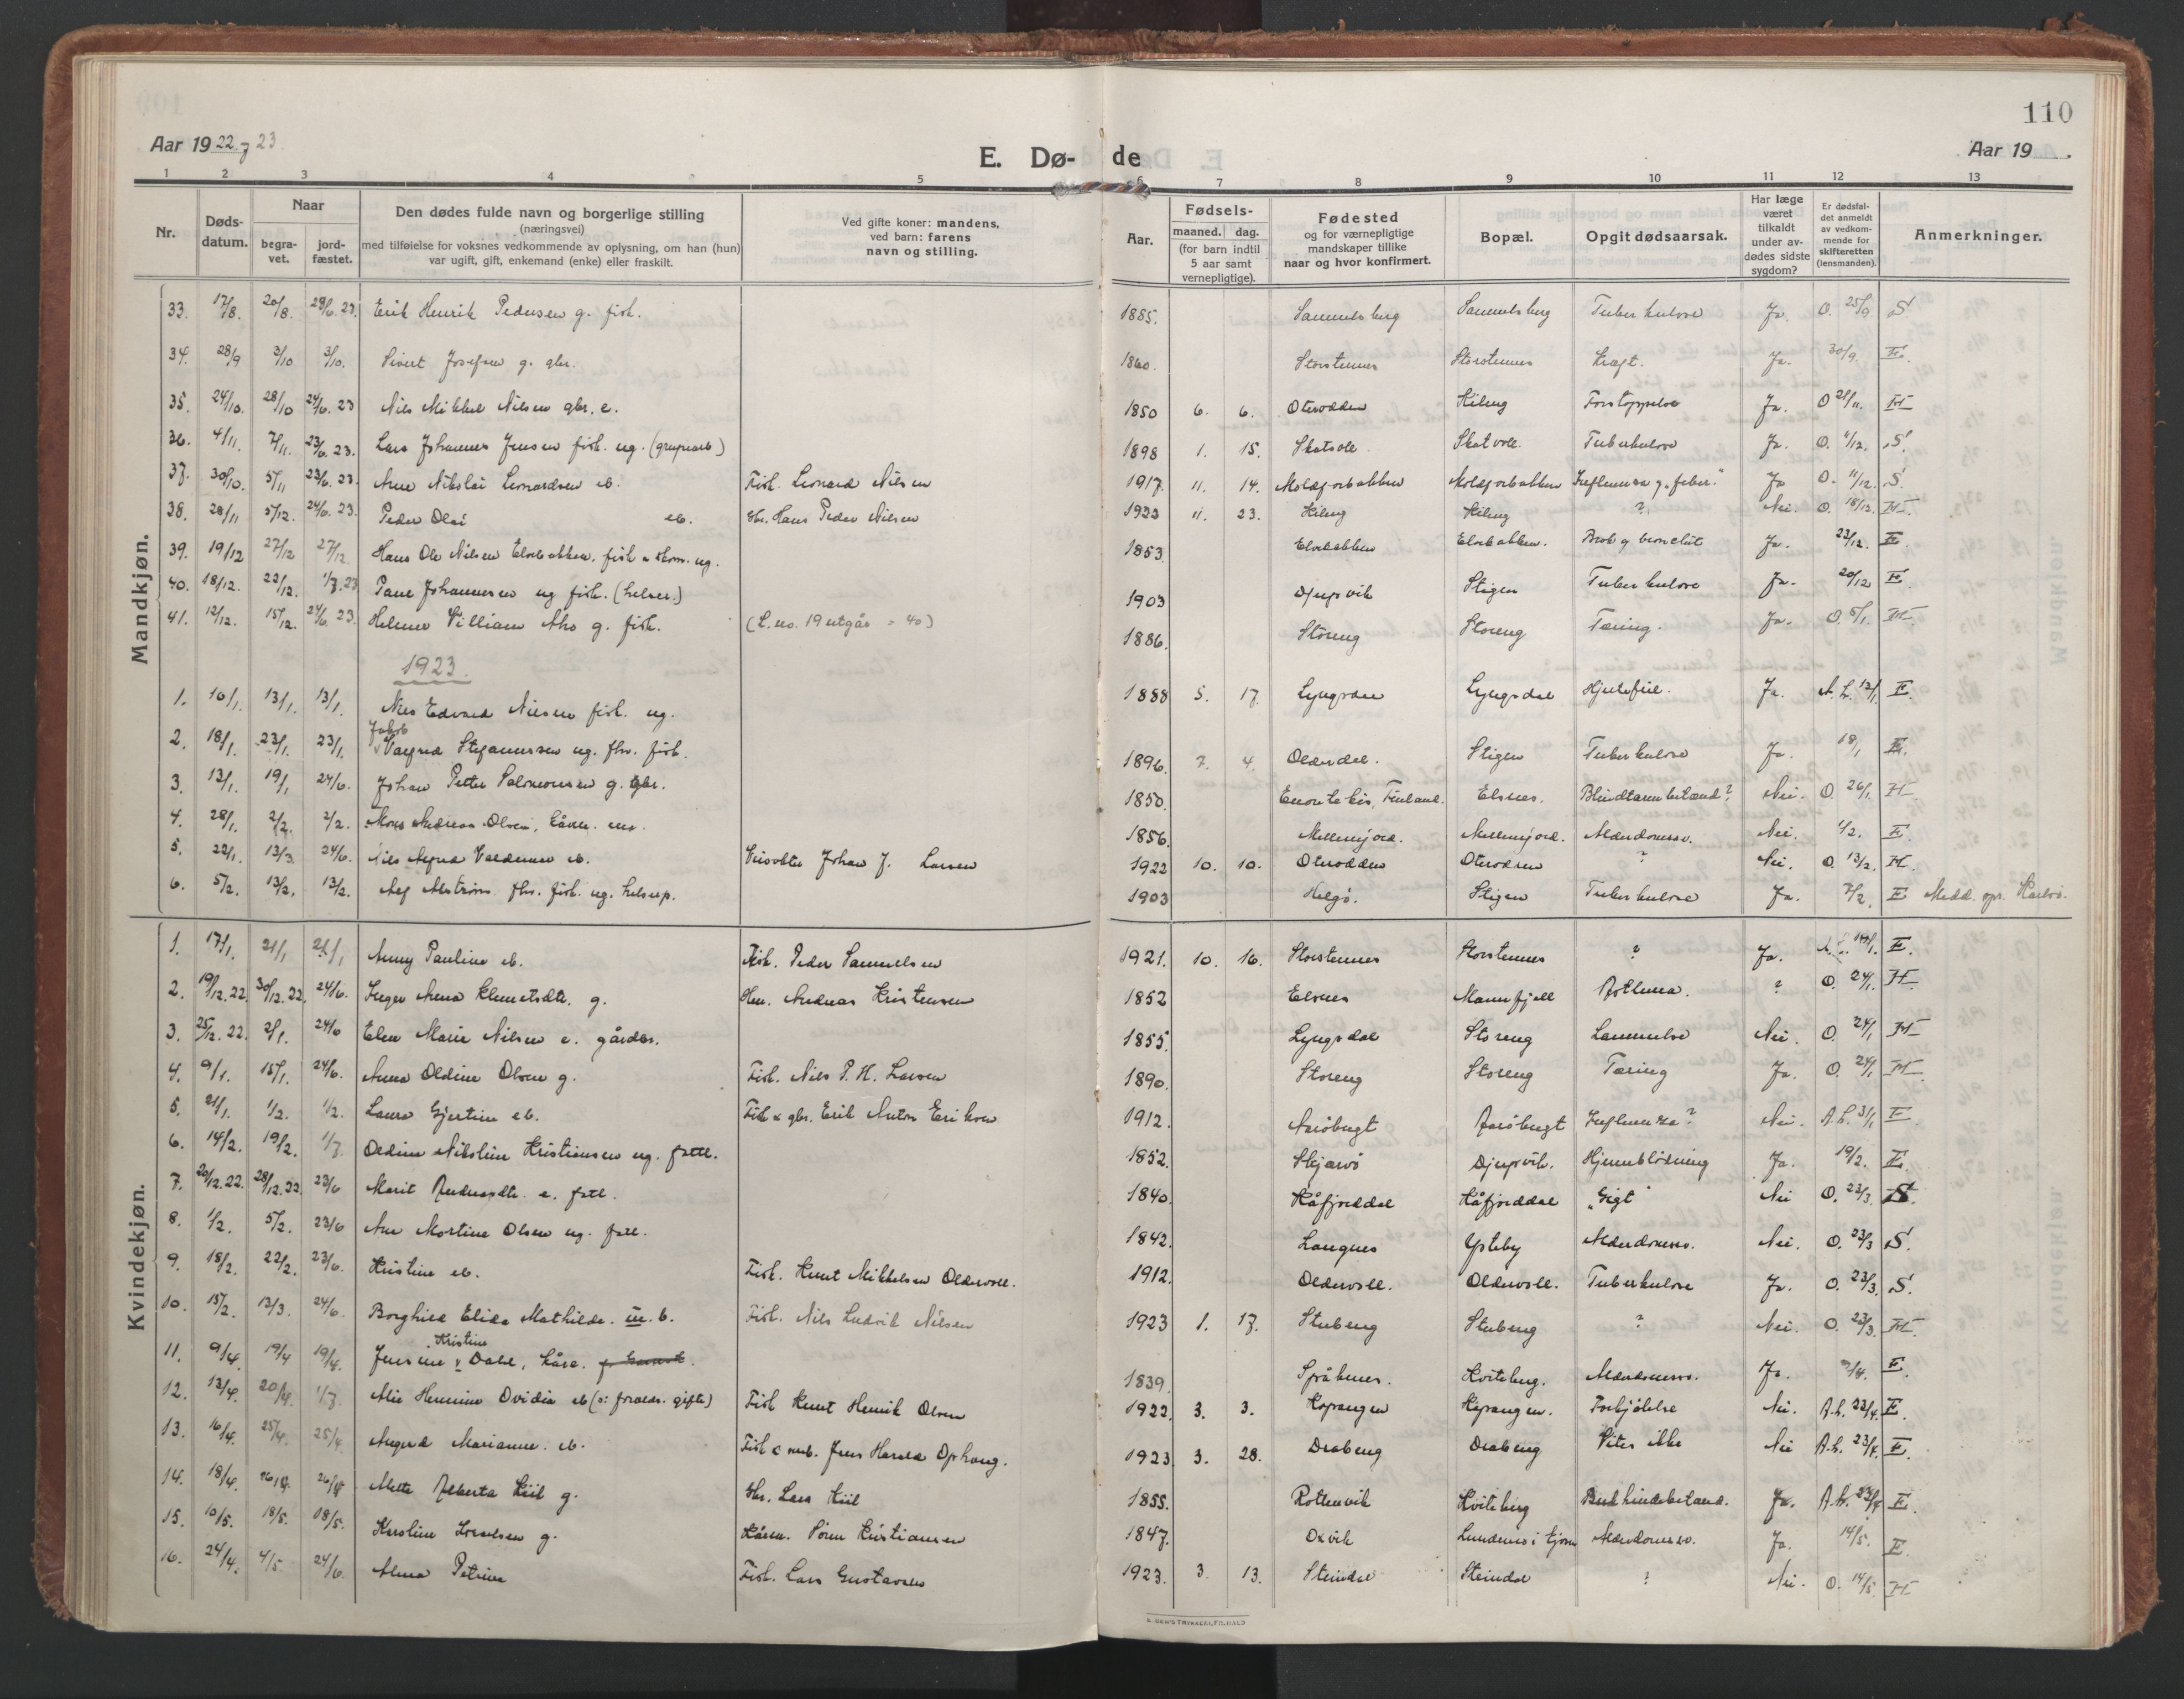 110
Aar 1922 og 23.
E. Dø- de
Aar 19 .
1 2 3 4 5 6 7 8 9 10 11 12 13
Nr.
Døds-datum.
Naar
begra-vet.
jord-fæstet.
Den dødes fulde navn og borgerlige stilling
(næringsvei)
med tilføielse for voksnes vedkommende av oplysning, om han (hun)
var ugift, gift, enkemand (enke) eller fraskilt.
Ved gifte koner: mandens,
ved barn: farens
navn og stilling.
Aar.
Fødsels-
maaned. dag.
(for barn indtil
5 aar samt
vernepligtige).
Fødested
og for værnepligtige
mandskaper tillike
naar og hvor konfirmert.
Bopæl.
Opgit dødsaarsak.
Har læge
været
tilkaldt
under av-
dødes sidste
sygdom?
Er dødsfal-
det anmeldt
av vedkom-
mende for
skifteretten
(lensmanden).
Anmerkninger.
Mandkjøn.
33. 17/8. 20/8. 29/6.23. Erik Henrik Pedersen g. fisk. 1885. Samuelsberg Samuelsberg Tuberkulose Ja. O. 25/9 S
34. 28/9 3/10 3/10. Sivert Josefsen g. gbr. 1860. Storstennes Storstennes Kræft. Ja. 30/9. E.
35. 24/10. 28/10 24/6.23 Nils Mikkel Nilsen gbr. e. 1850 6. 6. Oterodden Kileng Forstoppelse Ja. O 21/11. H
36. 4/11. 7/11. 23/6.23. Lars Johannes Jensen fisk. ug. (grubearb) 1898 1. 15. Skatvoll Skatvoll. Tuberkulose Ja. O. 4/12. S.
37. 30/10. 5/11 23/6.23. Arne Nikolai Leonardsen eb. Fisk. Leonard Nilsen 1917. 11. 14. Moldforbakken Moldforbakken Influensa g. feber." Ja O. 11/12. S.
38. 28/11 5/12. 24/6.23. Peder Olai eb. Gbr. Hans Peder Nilsen 1922 11. 23. Kileng Kileng ? Nei. O. 18/12. H.
39. 19/12 27/12 27/12. Hans Ole Nilsen Elvebakken, fisk & skom. ug. 1853. Elvebakken Elvebakken. Brok og Ja. 23/12. E.
40. 18/12. 22/12. 1/7.23 Paul Johannessen ug fisk. (helser.) 1903 Djupvik Stigen Tuberkulose Ja. 20/12 E.
41. 12/12. 15/12. 24/6.23. Helmer Villiam Aho g. fisk. (L. no. 19 utgår = 40) 1886. Storeng Storeng Tæring. Ja. O. 5/1. H.
1923.
1. 10/1. 13/1. 13/1. Nils Edvard Nilsen fisk. ug. 1888 5. 17. Lyngsdal Lyngsdal Hjertefeil. Ja. A.L. 13/1. E.
2. 18/1. 23/1. 23/1. Jakob Valfred Stefanussen ug. fhv. fisk. 1896. 7. 4. Olderdal. Stigen Tuberkulose Ja. 18/1 E.
3. 13/1. 19/1 24/6. Johan Petter Salomonsen g. gbr. 1850. Enontekis, Finland. Elsnes. Blindtarmbetænd? Nei. O. 26/1. H.
4. 28/1. 2/2. 2/2. Mons Andreas Olsen, kårm. em. 1856. Mellemjord. Mellemjord. Alderdomssv. Nei. 1/2. E.
5. 22/1. 13/3 24/6. Nils Alfred Valdemar eb. Veivokter Johan J. Larsen 1922 10. 10. Oterodden Oterodden ? Nei. O. 13/2. H.
6. 5/2. 13/2. 13/2. Alf Alstrøm fhv. fisk. ug. helsep. 1903 Helgø. Stigen Tuberkulose Ja. 7/2. E Medd. spr. Karlsø.
Kvindekjøn.
1. 17/1. 21/1 21/1 Anny Pauline eb. Fisk. Peder Samuelsen 1921. 10. 16. Storstennes Storstennes ? Ja. A.L. 19/1. E.
2. 19/12.22. 30/12.22. 24/6. Inger Anna Klemetsdtr. g. Hm. Andreas Kristensen 1852 Elsnes Mannfjell Astma. ? O. 24/1. H.
3. 25/12.22. 2/1. 24/6 Elen Marie Nilsen e. gårdbr. 1855. Lyngsdal Storeng Lammelse Nei. O. 24/1 H
4. 9/1. 15/1. 24/6. Anna Oldine Olsen g. Fisk. Nils P. H. Larsen 1890. Storeng Storeng Tæring Ja. O. 24/1 H.
5. 21/1. 1/2. 1/2. Laura Gjertine eb. Fisk & gbr. Erik Anton Erikson 1912. Aarøbugt Aarøbugt Influenza? Nei. A.L. 31/1 E
6. 14/2. 19/2. 1/7. Oldine Nikoline Kristiansen ug. fattl. 1852. Skjærvø Djupvik. Hjerneblödning Ja. 19/2. E.
7. 20/12.22. 28/12.22 23/6 Marit Andersdtr. e. fattl. 1840. Kåfjorddal Kåfjorddal "Gigt" Nei O. 23/3. S.
8. 1/2. 5/2. 23/6 Ane Mortine Olsen ug. fattl. 1842. Langnes Ysteby Alderdomssv. Nei. O. 23/3 S.
9. 18/2. 22/2. 23/6. Kristine eb. Fisk. Knut Mikkelsen Oldervoll. 1912. Oldervoll. Oldervoll. Tuberkulose Ja. O. 23/3. S.
10. 15/2. 13/3. 24/6. Borghild Elida Mathilde. u. b. Fisk. Nils Ludvik Nilsen 1923 1. 17. Stubeng Stubeng ? Nei. O. 23/3. H.
11. 9/4. 19/4 19/4. Jensine Kristine Dahl, kåre. 1839. Spåknes. Kviteberg. Alderdomssv. Ja. /4. E.
12. 13/4. 20/4. 1/7. Alie Hermine Ovidia eb (o: forældr. gifte) Fisk Knut Henrik Olsen 1922. 3. 3. Kopangen Kopangen. Forkjølelse Nei. A.L. 22/4. E.
13. 16/4. 25/4. 25/4. Asgerd Marianne. eb. Fisk & Jens Harald Ophaug. 1923. 3. 28. Drabeng Drabeng Vites ikke Nei A.L. 23/4. E.
14. 18/4. 26/4. 26/4 Mette Alberta Kiil g. Gbr. Lars Kiil 1855. Rottenvik Kviteberg Brukhindebetænd. Ja. A.L. 23/4 E.
15. 10/5. 18/5. 18/5. Karoline Israelsen g. Kårm. Sören Kristiansen 1847. Oxvik Lundenes i Alderdomssv. Ja. 14/5. E.
16. 24/4. 4/5. 24/6. Alma Petrine Fisk. Lars Gustavsen 1923. 3. 13. Steindal Steindal ? Nei. O. 14/5 H